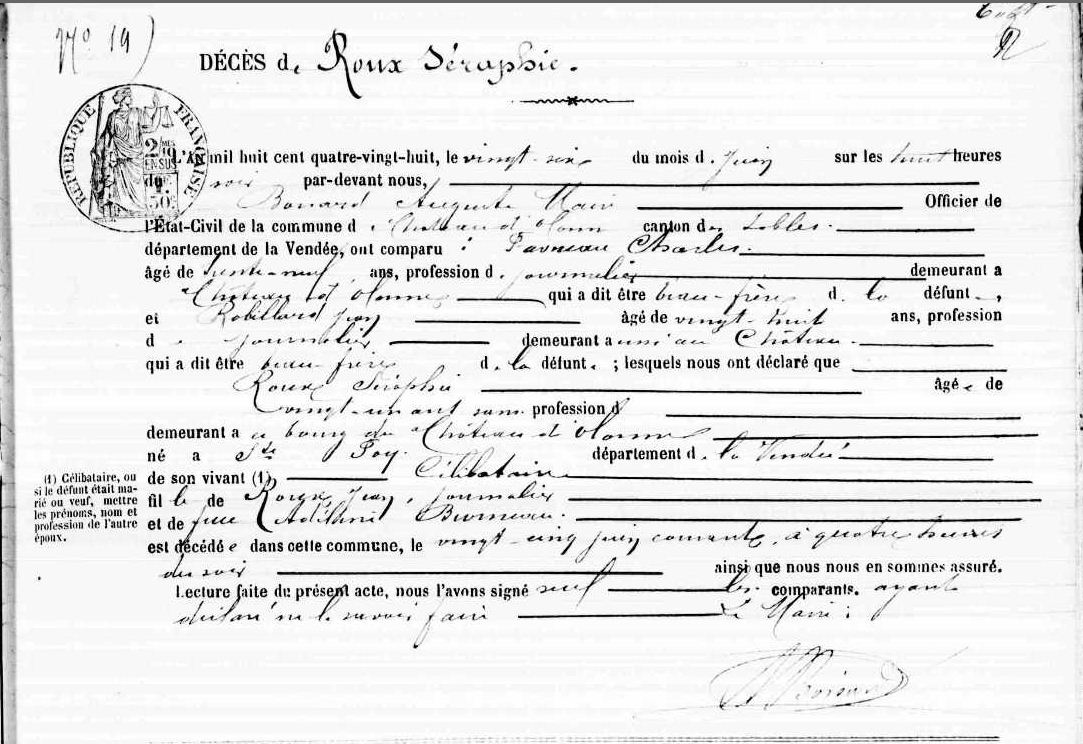 N° 19)
DÉCÈS de Roux Séraphie.
RÉPUBLIQUE FRANÇAISE
L'AN mil huit cent quatre-vingt-huit, le vingt-six du mois d. Juin sur les huit heures
du soir par-devant nous,
Auguste Maire Officier de
l'État-Civil de la commune d. Château d'olonne canton des Sables.
département de la Vendée, ont comparu : Charles
âgé de trente-neuf ans, profession d. journalier demeurant a
Château d'olonne qui a dit être beau-frère d. la défunt.,
et Robillard Jean âgé de vingt-huit ans, profession
d. journalier demeurant aussi au Château.
qui a dit être beau-frère d. la défunt. ; lesquels nous ont déclaré que
Roux Séraphie âgée de
vingt-un ans sans profession d
demeurant a u bourg du Château d'olonne
né a Ste Foy département d. la Vendée
de son vivant (1) Célibataire
fille de Roux Jean, journalier
et de feue
est décédée dans cette commune, le vingt-cinq juin courant, à quatre heures
du soir ainsi que nous nous en sommes assuré.
Lecture faite du présent acte, nous l'avons signé seul les comparants. ayant
déclaré ne le savoir faire Le Maire :
(1) Célibataire, ou
si le défunt était ma-
rié ou veuf, mettre
les prénoms, nom et
profession de l'autre
époux.